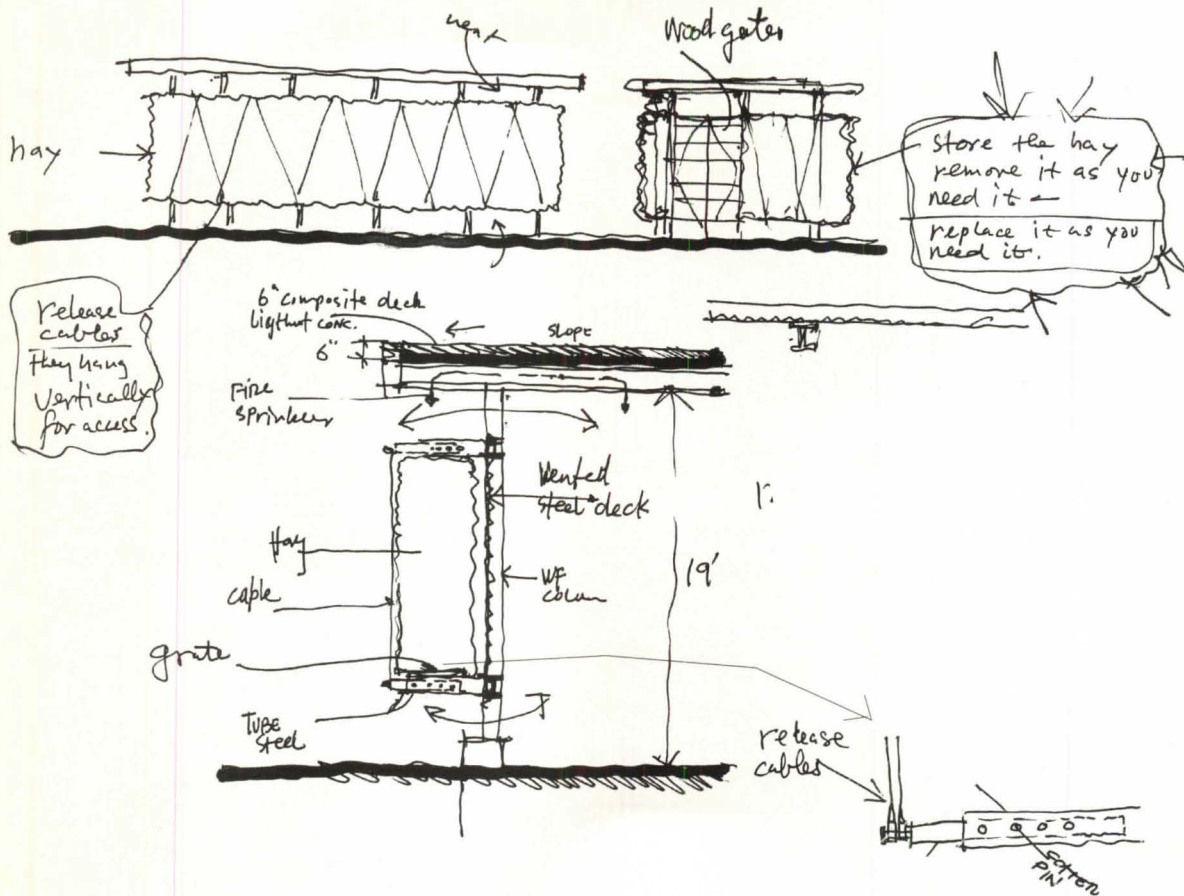 vent
Wood gates
hay
store the hay
remove it as you
need it
replace it as you
need it.
release
cables
they hang
vertically
for access.
6" composite deck
ligthwt conc.
6"
slope
Fire
sprinkler
Vented
steel deck
Hay
cable
WF
colum
19'
grate
TUBE
Steel
release
cables
COTTER
PIN